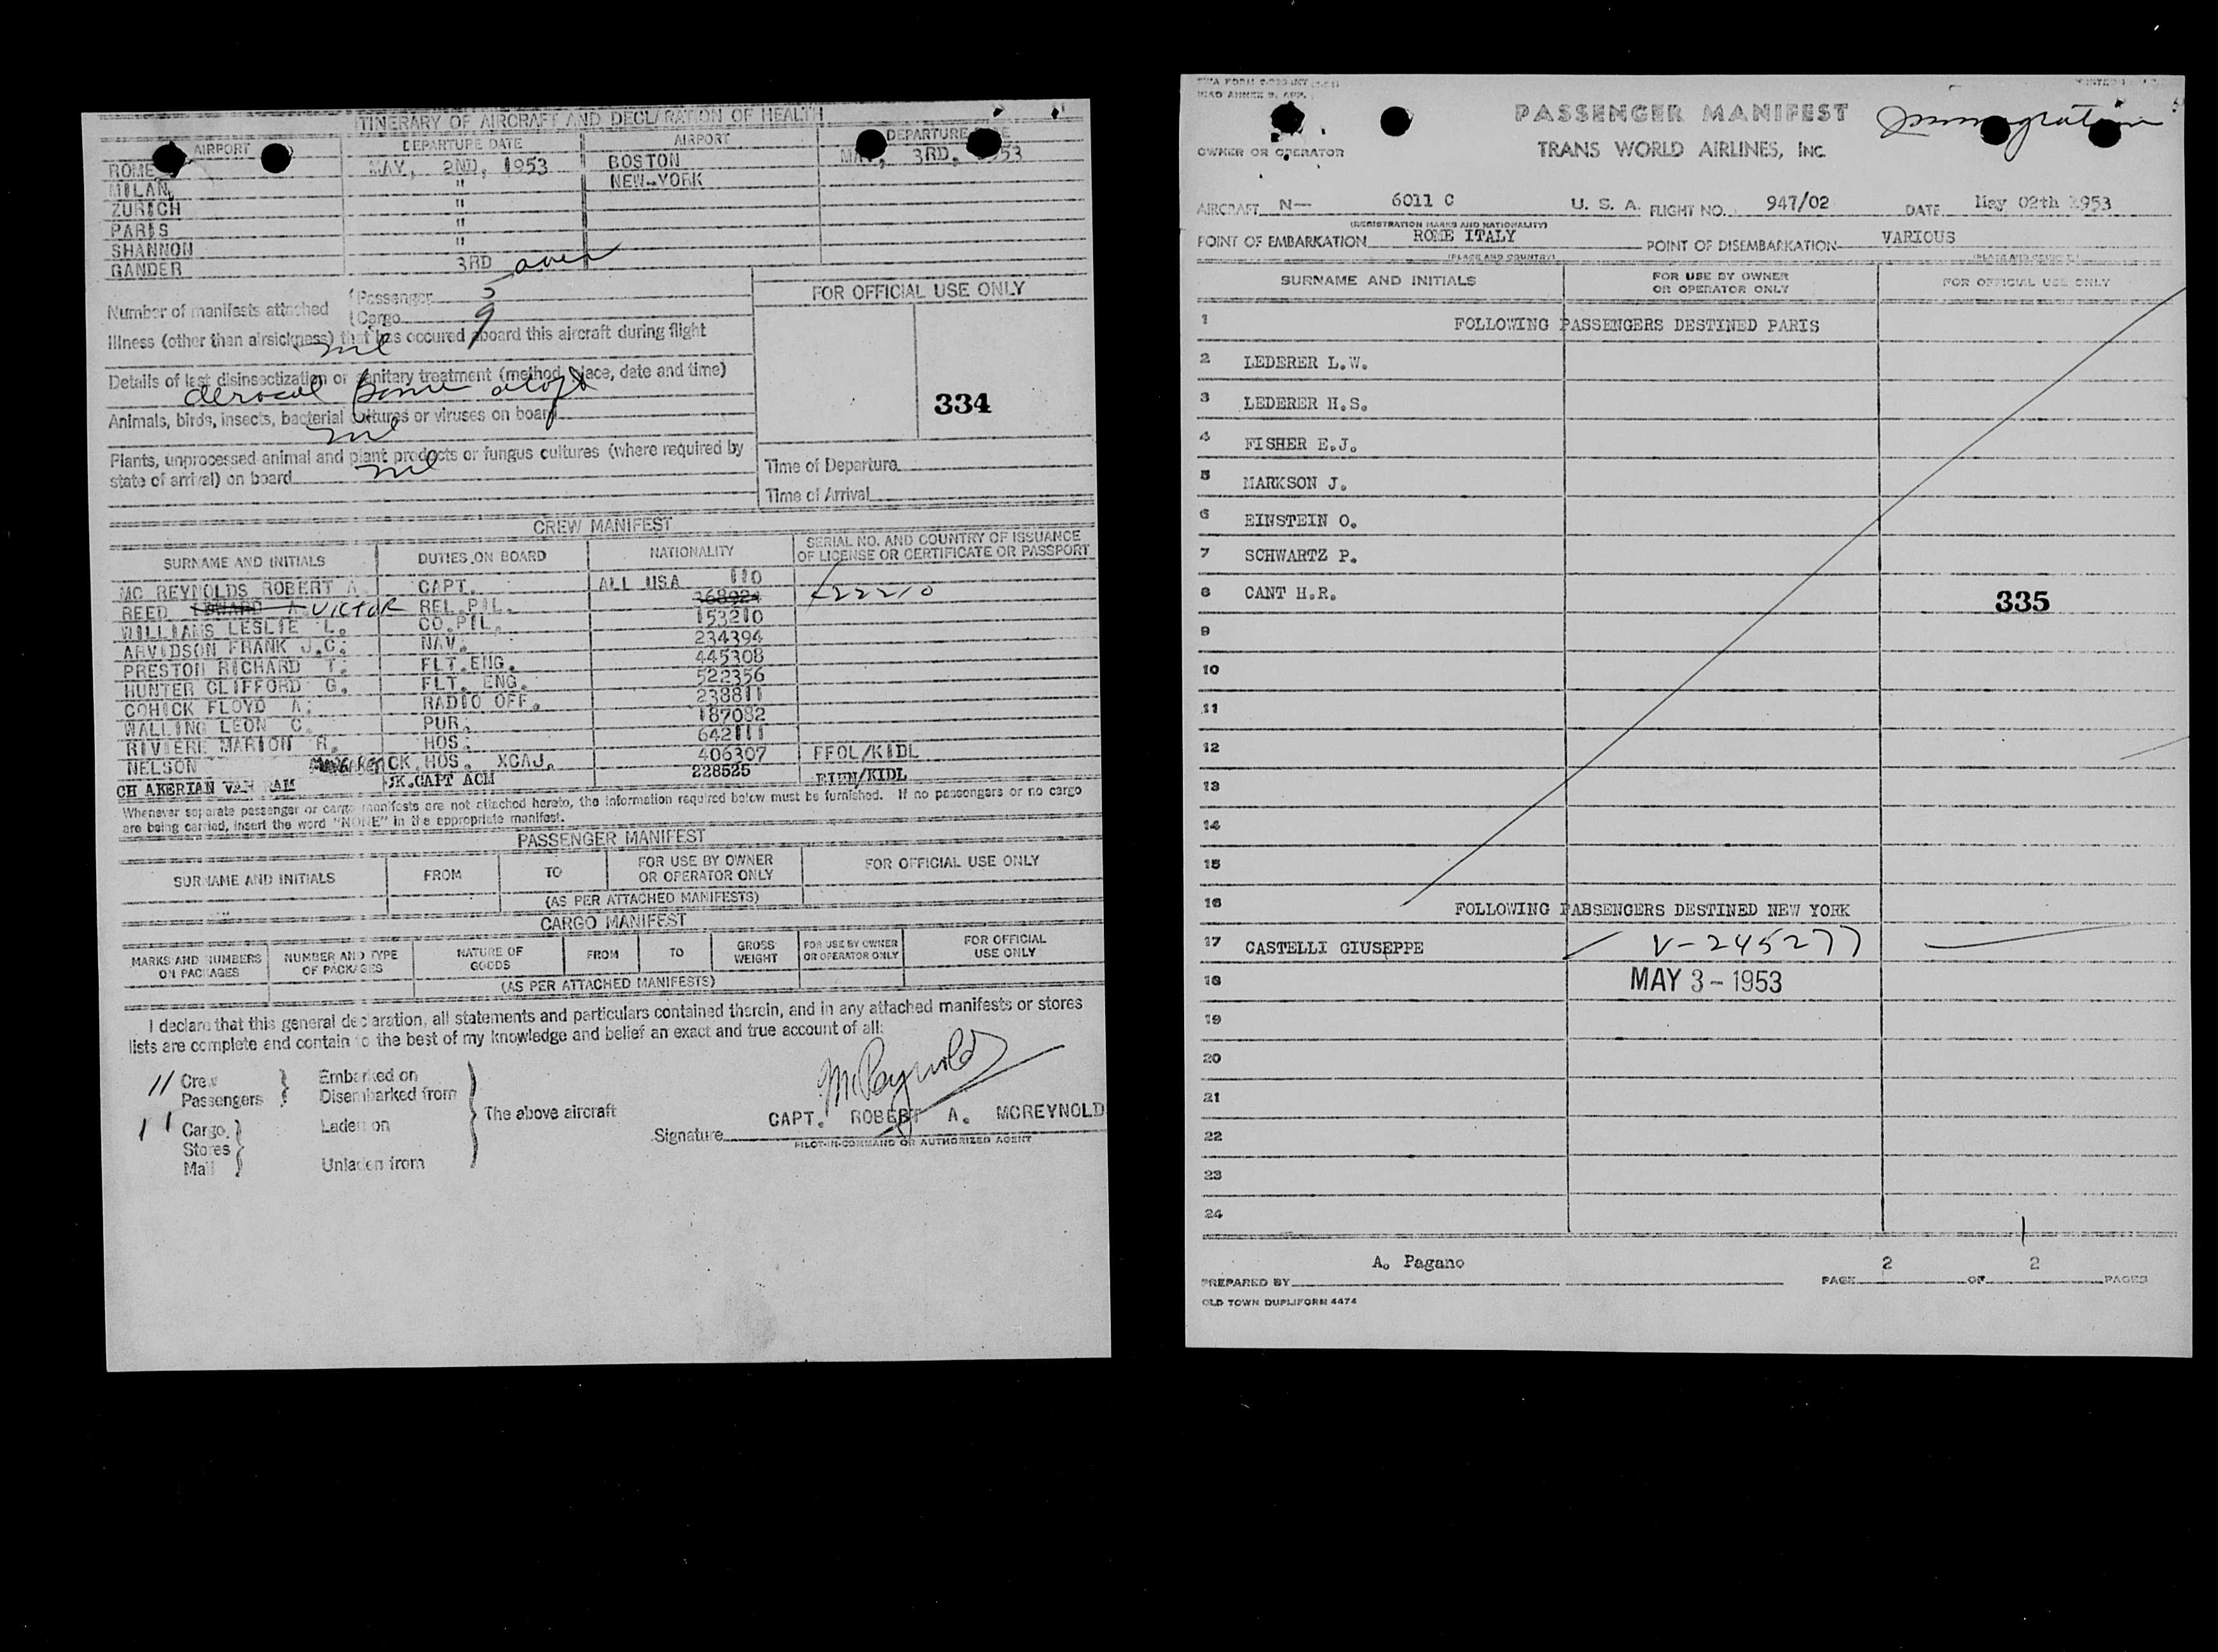 ITINERARY OF AIRCRAFT AND DECLARATION OF HEALTH
AIRPORT DEPARTURE DATE AIRPORT DEPARTURE
ROME MAY, 2ND, 1953 BOSTON 3RD, 53
MILAN " NEW-YORK
ZURICH "
PARIS "
SHANNON "
GANDER 3RD
Number of manifests attached
(Passenger 5
(Cargo 9
Illness (other than airsickness) that has occured aboard this aircraft during flight
nil
Details of last disinsectization or sanitary treatment (method, place, date and time)
aerosol
Animals, birds, insects, bacterial cultures or viruses on board
nil
Plants, unprocessed animal and plant products or fungus cultures (where required by
state of arrival) on board nil
FOR OFFICIAL USE ONLY
334
Time of Departure
Time of Arrival
CREW MANIFEST
SURNAME AND INITIALS DUTIES ON BOARD NATIONALITY SERIAL NO. AND COUNTRY OF ISSUANCE
OF LICENSE OR CERTIFICATE OR PASSPORT
MC REYNOLDS ROBERT A. CAPT. ALL USA 110
REED EDWARD A. VICTOR REL.PIL. 268924 422210
WILLIAMS LESLIE L. CO.PIL. 153210
ARVIDSON FRANK J.C. NAV. 234394
PRESTON RICHARD T. FLT.ENG. 445308
HUNTER CLIFFORD G. FLT. ENG. 522356
COHICK FLOYD A. RADIO OFF. 238811
WALLING LEON C. PUR. 187082
RIVIERE MARION R. HOS. 642111
NELSON MARGARET CK. HOS. XCAJ. 406307 FFOL/KIDL
CH AKERIAN VAH RAM CK.CAPT ACM 228525 EIFN/KIDL
Whenever separate passenger or cargo manifests are not attached hereto, the information required below must be furnished. If no passengers or no cargo
are being carried, insert the word "NONE" in the appropriate manifest.
PASSENGER MANIFEST
SURNAME AND INITIALS FROM TO FOR USE BY OWNER
OR OPERATOR ONLY FOR OFFICIAL USE ONLY
(AS PER ATTACHED MANIFESTS)
CARGO MANIFEST
MARKS AND NUMBERS
ON PACKAGES NUMBER AND TYPE
OF PACKAGES NATURE OF
GOODS FROM TO GROSS
WEIGHT FOR USE BY OWNER
OR OPERATOR ONLY FOR OFFICIAL
USE ONLY
(AS PER ATTACHED MANIFESTS)
I declare that this general declaration, all statements and particulars contained therein, and in any attached manifests or stores
lists are complete and contain to the best of my knowledge and belief an exact and true account of all:
11 Crew
Passengers
Embarked on
Disembarked from
Cargo
Stores
Mail
Laden on
Unladen from
The above aircraft
McReynolds
CAPT. ROBERT A. MCREYNOLD
Signature
PILOT-IN-COMMAND OR AUTHORIZED AGENT
PASSENGER MANIFEST
Immigration
OWNER OR OPERATOR TRANS WORLD AIRLINES, INC.
AIRCRAFT N— 6011 C U. S. A. FLIGHT NO. 947/02 DATE May 02th 1953
(REGISTRATION MARKS AND NATIONALITY)
POINT OF EMBARKATION ROME ITALY POINT OF DISEMBARKATION VARIOUS
(PLACE AND COUNTRY)
SURNAME AND INITIALS FOR USE BY OWNER
OR OPERATOR ONLY FOR OFFICIAL USE ONLY
1 FOLLOWING PASSENGERS DESTINED PARIS
2 LEDERER L.W.
3 LEDERER H.S.
4 FISHER E.J.
5 MARKSON J.
6 EINSTEIN O.
7 SCHWARTZ P.
8 CANT H.R. 335
9
10
11
12
13
14
15
16 FOLLOWING PABSENGERS DESTINED NEW YORK
17 CASTELLI GIUSEPPE V-245277
18 MAY 3 - 1953
19
20
21
22
23
24
A. Pagano
PREPARED BY PAGE 2 OF 2 PAGES
OLD TOWN DUPLIFORM 4474